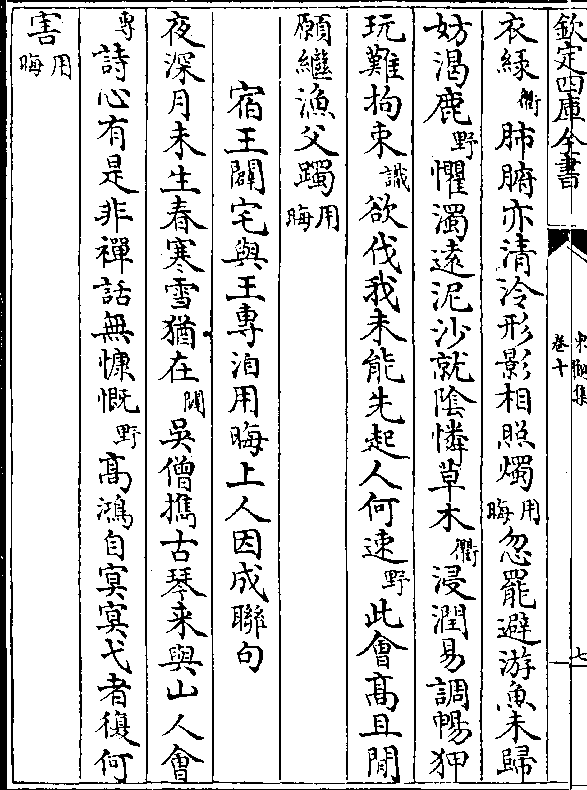 欽定四庫全書
東觀集
卷十
七
衣緣衢肺腑亦清冷形影相照燭用晦忽罷避游魚未歸
妨渴鹿野懼濁遠泥沙就陰憐草木衢浸潤易調暢狎
玩難拘束識欲伐我未能先起人何速野此會髙且閒
願繼漁父躅用晦
宿王闢宅與王專洎用晦上人因成聯句
夜深月未生春寒雪猶在闢吳僧擕古琴来與山人會
專詩心有是非禪話無慷慨野髙鴻自冥冥弋者復何
害用晦